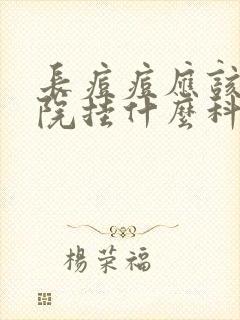 長痘痘應該
院挂什麽科
楊荣福